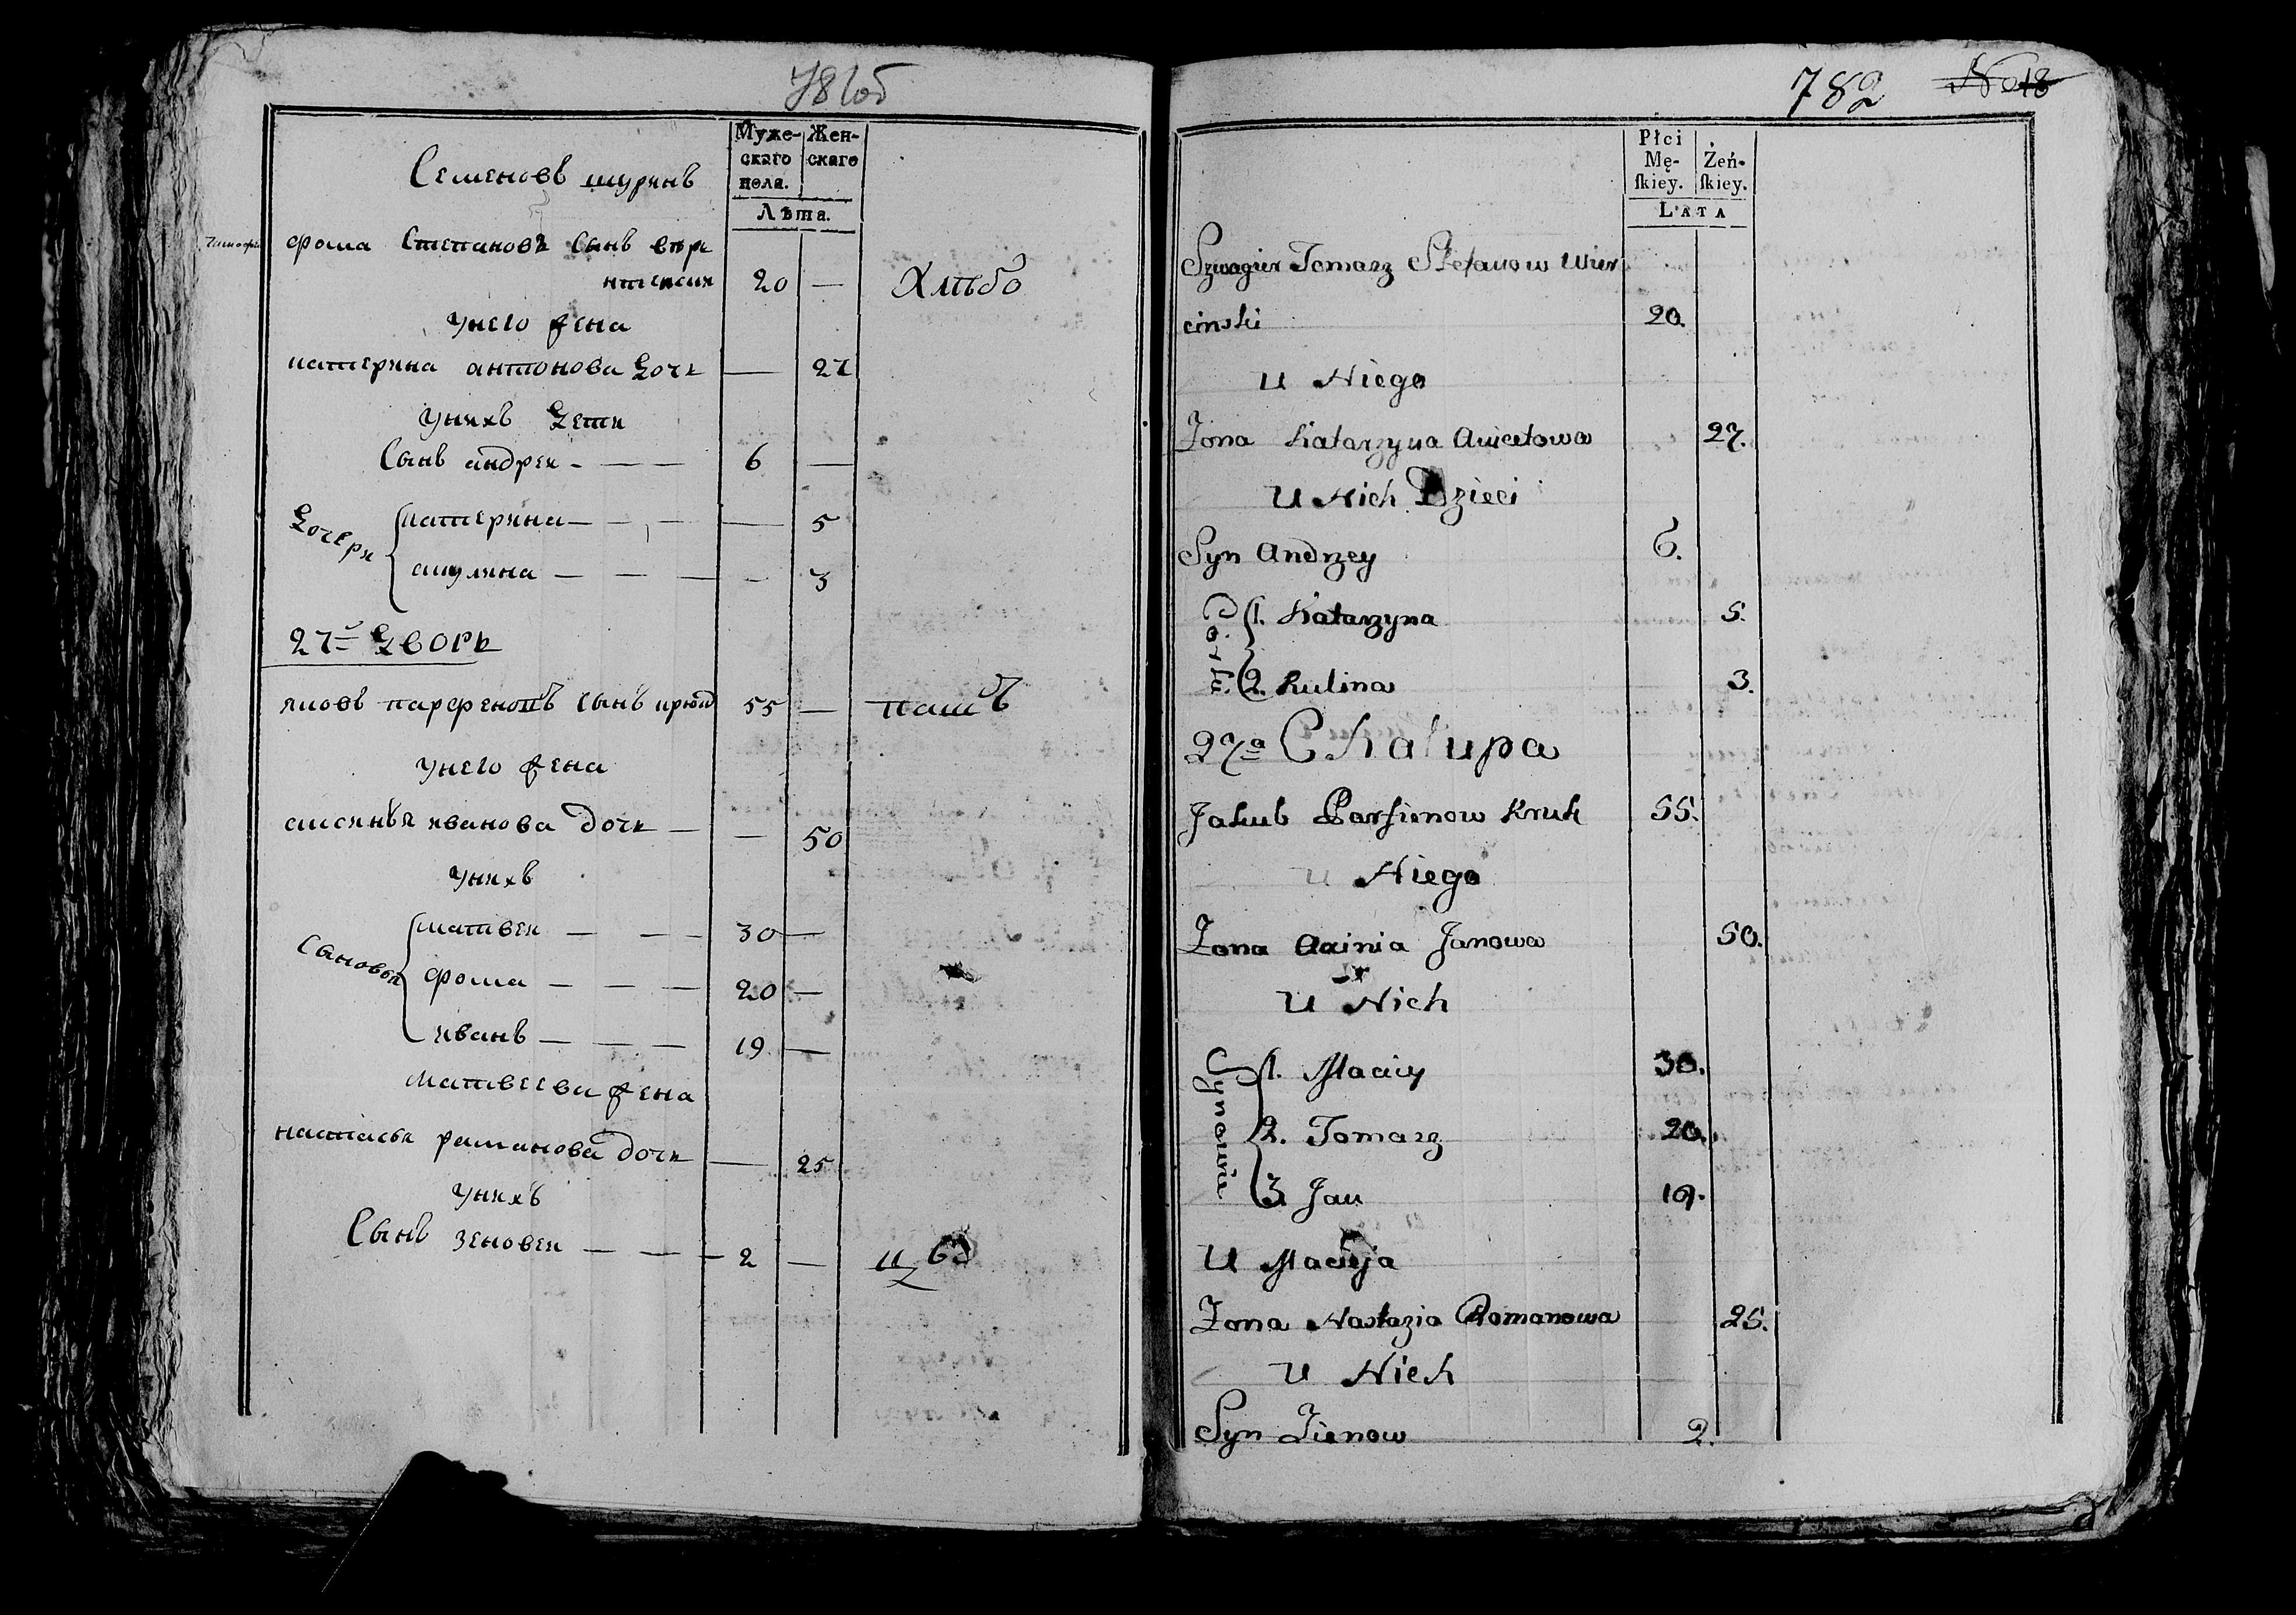 781об
Муже-
скаго
пола.
Жен-
скаго
Лѣта.
Семеновъ шуринъ
фома Степановъ Сынъ
20 —
унего жена
катерина антонова дочь — 27
унихъ дети
Сынъ андреи - — — 6 —
Дочери
катерина — — — — 5
акулина — — — — 3
27й дворъ
яковъ парфеновъ Сынъ 55 —
унего жена
аксинья иванова дочь — — 50
унихъ
Сыновья
матвеи — — — 30 —
фома — — — 20 —
иванъ — — — 19 —
матвеева жена
настасья раманова дочь — 25
унихъ
Сынъ зеновеи — — — 2 —
782 No 18
Płci
Mę-
ſkiey.
Żeń-
ſkiey.
LATA
Szwagier Tomasz Stefanow Wier
cinski 20.
u Niego
Zona Katarzyna Anietowa 27.
U Nich Dzieci
Syn Andrzey 6.
Corki
1. Katarzyna 5.
2. Kulina 3.
27a Chalupa
Jakub Parfienow Kruk 55.
u Niego
Zona Axinia Janowa 50.
U Nich
Synowie
1. Maciey 30.
2. Tomasz 20.
3 Jan 19.
U Macieja
Zona Nastazia Romanowa 25.
U Nich
Syn Zienow 2.